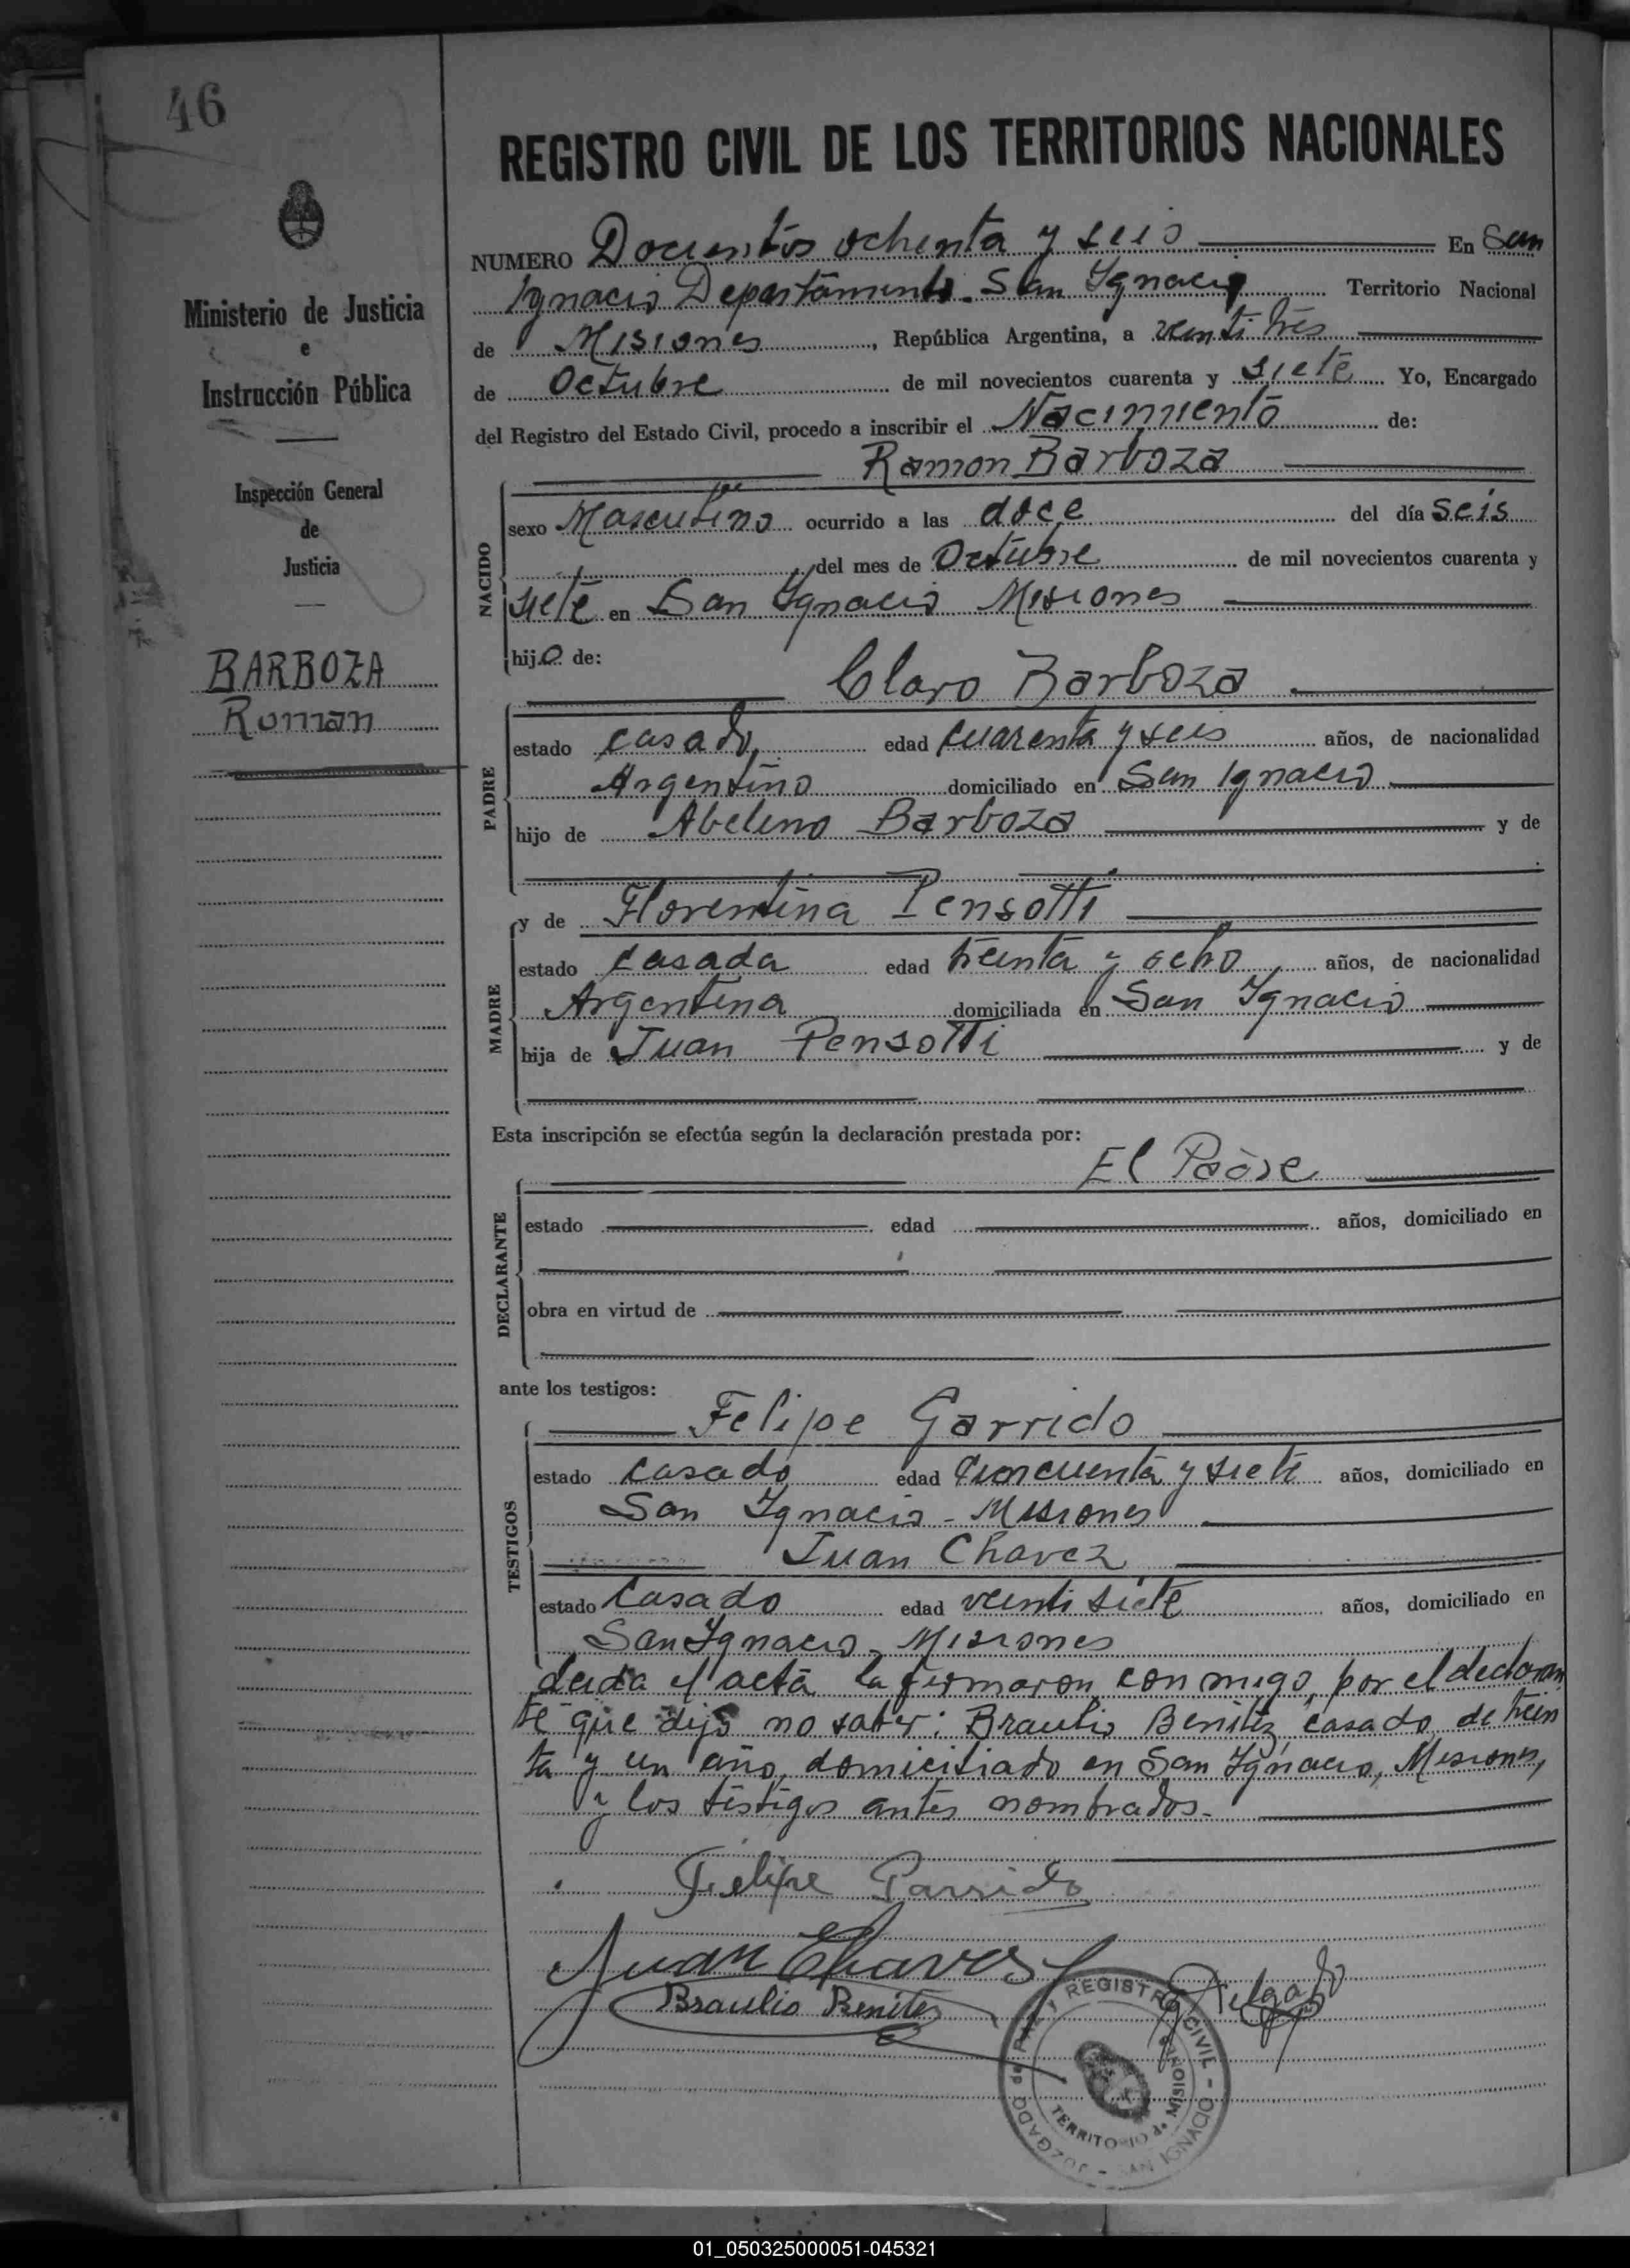 46
REGISTRO CIVIL DE LOS TERRITORIOS NACIONALES
Ministerio de Justicia
e
Instrucción Pública
Inspección General
de
Justicia
BARBOZA
Roman
NUMERO Docientos ochenta y seis En San
Ignacio Departamento San Ignacio Territorio Nacional
de Misiones, República Argentina, a veinti trés
de Octubre de mil novecientos cuarenta y siete Yo, Encargado
del Registro del Estado Civil, procedo a inscribir el Nacimiento de:
Ramon Barboza
NACIDO
sexo Masculino ocurrido a las doce del día seis
del mes de Octubre de mil novecientos cuarenta y
siete en San Ignacio Misiones
hijo de:
Claro Barboza
PADRE
estado casado edad cuarenta y seis años, de nacionalidad
Argentino domiciliado en San Ignacio
hijo de Abelino Barboza y de
MADRE
y de Florentina Pensotti
estado casada edad treinta y ocho años, de nacionalidad
Argentina domiciliada en San Ignacio
hija de Juan Pensotti y de
Esta inscripción se efectúa según la declaración prestada por:
El Padre
DECLARANTE
estado edad años, domiciliado en
obra en virtud de
ante los testigos:
TESTIGOS
Felipe Garrido
estado casado edad cincuenta y siete años, domiciliado en
San Ignacio - Misiones
Juan Chavez
estado casado edad veinti siete años, domiciliado en
San Ignacio - Misiones
leida el acta la firmaron con migo, por el declaran
te que dijo no saber: Braulio Benitez, casado, de trein
ta y un año, domiciliado en San Ignacio, Misiones,
y los testigos antes nombrados.-
Felipe Garrido
Juan Chaves
Braulio Benitez
JUZGADO de PAZ y REGISTRO CIVIL - SAN IGNACIO -
TERRITORIO de MISIONES
01_050325000051-045321